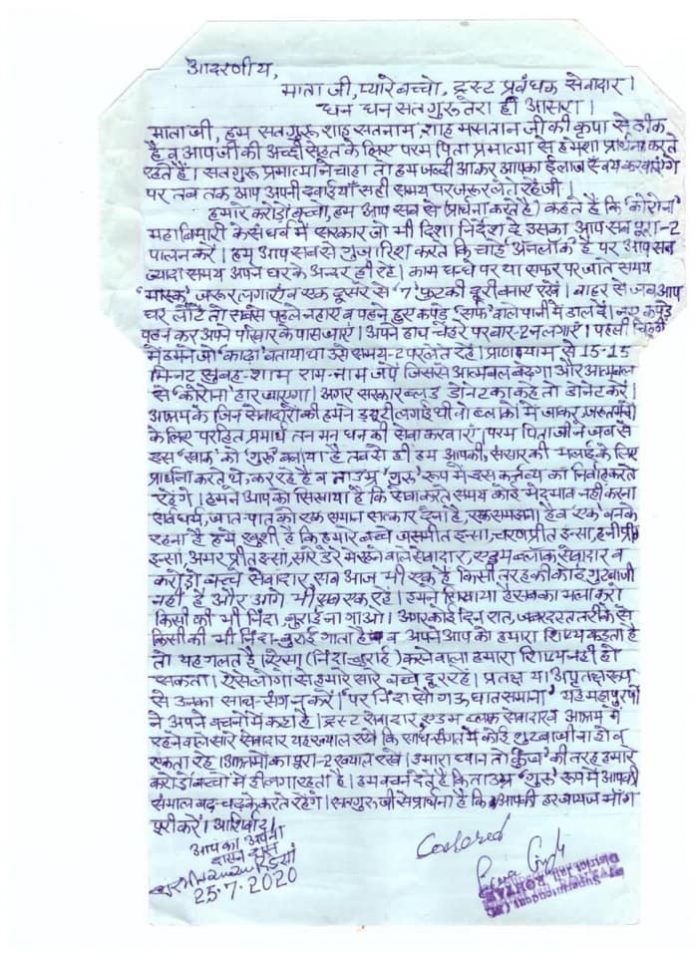 आदरणीय,
माता जी, प्यारे बच्चो, ट्रस्ट प्रबंधक सेवादार।
धन धन सतगुरू तेरा ही आसरा।
माता जी, हम सतगुरू शाह सतनाम, शाह मसतान जी की कृपा से ठीक
है व आप जी की अच्छी सेहत के लिए परम पिता प्रमात्मा से हमेशा प्रार्थना करते
रहते हैं। सतगुरू प्रमात्मा ने चाहा तो हम जल्दी आकर आपका ईलाज स्वयं करवाएंगे
पर तब तक आप अपनी दवाईयाँ सही समय पर जरूर लेते रहें जी।
हमारे करोड़ों बच्चो, हम आप सब से (प्रार्थना करते है) कहते है कि 'कोरोना'
महाबिमारी के संघर्ष में सरकार जो भी दिशा निर्देश दे उसका आप सब पूरा-2
पालन करें। हम आप सबसे गुजारिश करते कि चाहे 'अनलॉक' है पर आप सब
ज्यादा समय अपने घर के अन्दर ही रहें। काम धन्धे पर या सफर पर जाते समय
'मास्क' जरूर लगाएं व एक दूसरे से '7' फुट की दूरी बनाए रखें। बाहर से जब आप
घर लौटें तो सबसे पहले नहाएं व पहने हुए कपड़े 'सर्फ' वाले पानी में डाल दें। नए कपड़े
पहन कर अपने परिवार के पास जाएं। अपने हाथ चेहरे पर बार-2 न लगाएं। पहली चिट्ठी
में हमने जो 'काढ़ा' बताया था उसे समय-2 पर लेते रहें। प्राणायाम से 15-15
मिनट सुबह-शाम राम-नाम जपें जिससे आत्मबल बढ़ेगा और आत्मबल
से 'कोरोना' हार जाएगा। अगर सरकार ब्लड डोनेट का कहे तो डोनेट करें।
आश्रम के जिन सेवादारों की हमने ड्यूटी लगाई थी वो ब्लाकों में जाकर, जरूरतमंदों
के लिए परहित प्रमार्थ तन मन धन की सेवा करवाएं। परम पिता जी ने जब से
इस 'खाक' को 'गुरू' बनाया है तब से ही हम आपकी, संसार की भलाई के लिए
प्रार्थना करते थे, कर रहे है व ताउम्र 'गुरू' रूप में इस कर्तव्य का निर्वाह करते
रहेंगे। हमने आपको सिखाया है कि सेवा करते समय कोई भेदभाव नहीं करना
सर्व धर्म, जात-पात को एक समान सत्कार देना है, एक समझना है व एक बनके
रहना है हमें खुशी है कि हमारे बच्चे जसमीत इन्सां, चरणप्रीत इन्सां, हनीप्रीत
इन्सां, अमरप्रीत इन्सां, सारे डेरे में रहने वाले सेवादार, एडम ब्लाक सेवादार व
करोड़ों बच्चे सेवादार, सब आज भी एक हैं किसी तरह की कोई गुटबाजी
नहीं है और आगे भी सब एक रहें। हमने सिखाया है सबका भला करो
किसी की भी निंदा, बुराई ना गाओ। अगर कोई दिन रात, जबरदस्त तरीके से
किसी की भी निंदा-बुराई गाता है व अपने आप को हमारा शिष्य कहता है
तो यह गलत है। ऐसा (निंदा, बुराई) करने वाला हमारा शिष्य नहीं हो
सकता। ऐसे लोगों से हमारे सारे बच्चे दूर रहें। प्रतक्ष या अप्रतक्ष रूप
से उनका साथ-संग न करें। 'पर निंदा सौ गऊ घात समाना' यह महापुरुषों
ने अपने वचनों में कहा है। ट्रस्ट सेवादार, एडम ब्लाक सेवादार व आश्रम में
रहने वाले सारे सेवादार यह ख्याल रखें कि साध-संगत में कोई गुटबाजी ना हो व
एकता रहे। आश्रमों का पूरा-2 ख्याल रखें। हमारा ध्यान तो 'कुंज' की तरह हमारे
करोड़ों बच्चों में ही लगा रहता है। हम वचन देते हैं कि ताउम्र 'गुरू' रूप में आपकी
संभाल बढ़-चढ़ के करते रहेंगे। सतगुरू जी से प्रार्थना है कि आपकी हर जायज माँग
पूरी करें। आशिर्वाद।
आप का अपना
दासन दास
25.7.2020
Superintendent
District Jail ROHTAK